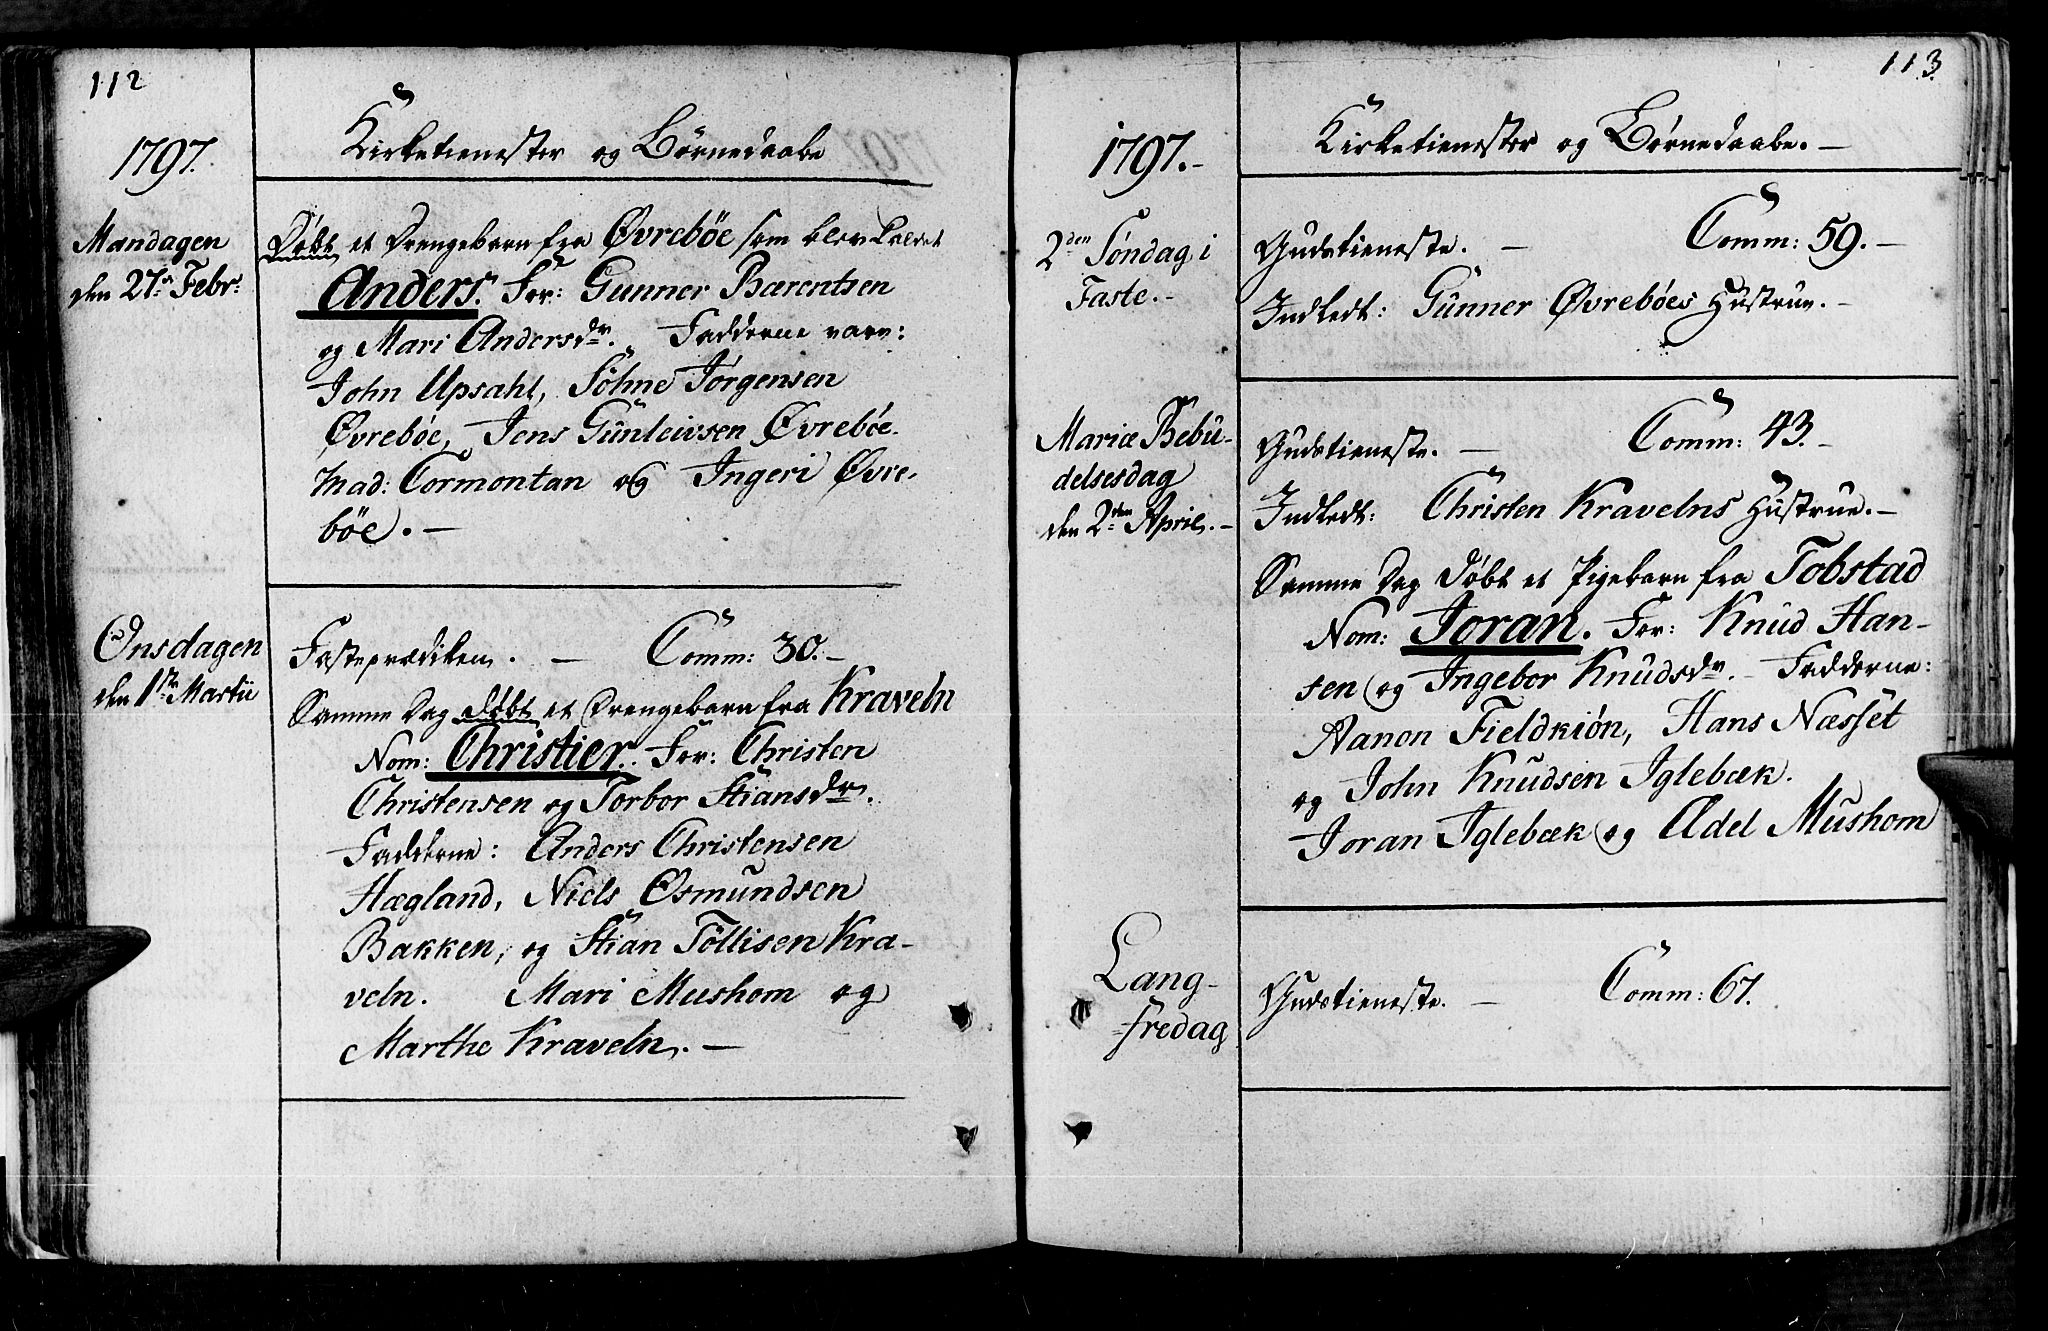 112
1797.
Kirketienester og Børnedaabe
Mandagen
den 27de Febr:
Døbt et Drengebarn fra Øvrebøe som blev kaldet
Anders. For: Gunner Barentsen
og Mari Andersdr. Fadderne vare:
John Upsahl, Söhne Jørgensen
Øvrebøe, Jens Gunleivsen Øvrebøe.
Mad: Tormontan og Ingeri Øvre-
bøe. —
Onsdagen
den 1ste Martii
Fasteprædiken. — Comm: 30. —
Samme Dag døbt et Drengebarn fra Kraveln
Nom: Christier. For: Christen
Christensen og Torbor Stiansdr.
Fadderne: Anders Christensen
Hægland, Niels Osmundsen
Bakken, og Stian Tollisen Kra-
veln. Mari Mushom og
Marthe Kraveln. —
113.
1797. -
Kirketienester og Børnedaabe. —
2den Søndag i
Faste. -
Gudstieneste. — Comm: 59. —
Indledt: Gunner Øvrebøes Hustrue. -
Mariæ Bebu-
delsesdag
den 2den April. -
Gudstieneste. — Comm: 43. -
Indledt: Christen Kravelns Hustrue. -
Samme Dag døbt et Pigebarn fra Tobstad
Nom: Joran. For: Knud Han-
sen og Ingebor Knudsdr. - Fadderne:
Aanon Fieldkiøn, Hans Næsset
og John Knudsen Iglebæk.
Joran Iglebæk og Adel Mushom
Lang-
fredag
Gudstieneste. — Comm: 67.